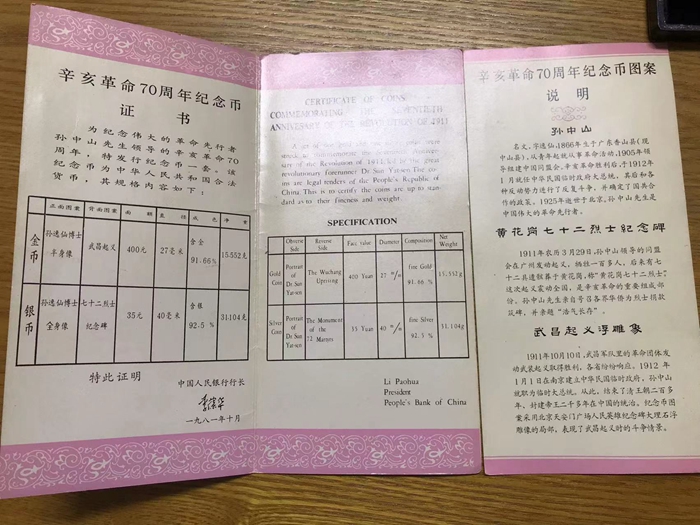 辛亥革命70周年纪念币
证 书
为纪念伟大的革命先行者
孙中山先生领导的辛亥革命70
周年，特发行纪念币一套。该
纪念币为中华人民共和国合法
货币，其规格内容如下：
正面图案 背面图案 面 额 直 径 成 色 净 重
金币 孙逸仙博士半身像 武昌起义 400元 27毫米 含金 91.66% 15.552克
银币 孙逸仙博士全身像 七十二烈士纪念碑 35元 40毫米 含银 92.5 % 31.104克
特此证明
中国人民银行行长
一九八一年十月
CERTIFICATE OF COINS
COMMEMORATING THE
ANNIVERSARY OF THE REVOLUTION OF 1911
sary of the Revolution of 1911, led by the great
revolutionary forerunner Dr Sun Yat-sen The co-
ins are legal tenders of the People's Republic of
China. This is to certify the coins are up to stan-
dard as to their fineness and weight.
SPECIFICATION
Obverse Side Reverse Side Face value Diameter Composition Net Weight
Gold Coin Portrait of Dr Sun Yat-sen The Wuchang Uprising 400 Yuan 27 m/m Fine Gold 91.66 % 15,552g
Silver Coin Portrait of Dr Sun Yat-sen The Monument of the 72 Martyrs 35 Yuan 40 m/m Fine Silver 92.5 % 31,104g
Li Paohua
President
People's Bank of China
辛亥革命70周年纪念币图案
说 明
孙中山
名文，字逸仙，1866年生于广东香山县(现
中山县)，从青年起就从事革命活动，1905年领
导组建中国同盟会，辛亥革命胜利后，于1912年
1 月就任中华民国临时政府大总统，其后和各
种反动势力进行了反复斗争，并确定了国共合
作的政策，1925年逝于北京，孙中山先生是
中国伟大的革命先行者。
黄花岗七十二烈士纪念碑
1911年农历3月29日，孙中山领导的同盟
会在广州发动起义，牺牲一百多人，后来有七
十二具遗骸葬于黄花岗，称“黄花岗七十二烈士”。
这次起义震动全国，是辛亥革命的重要组成部
份。孙中山先生亲自号召各界华侨为烈士捐款
筑碑，并亲题“浩气长存”。
武昌起义浮雕象
1911年10月10日，武昌军队里的革命团体发
动武装起义取得胜利，各省纷纷响应，1912 年
1 月 1 日在南京建立中华民国临时政府，孙中山
就职为临时大总统。从此，结束了清王朝二百多
年，封建帝王二千多年在中国的统治。纪念币图
案采用北京天安门广场人民英雄纪念碑大理石浮
雕像的局部，表现了武昌起义时的斗争情景。